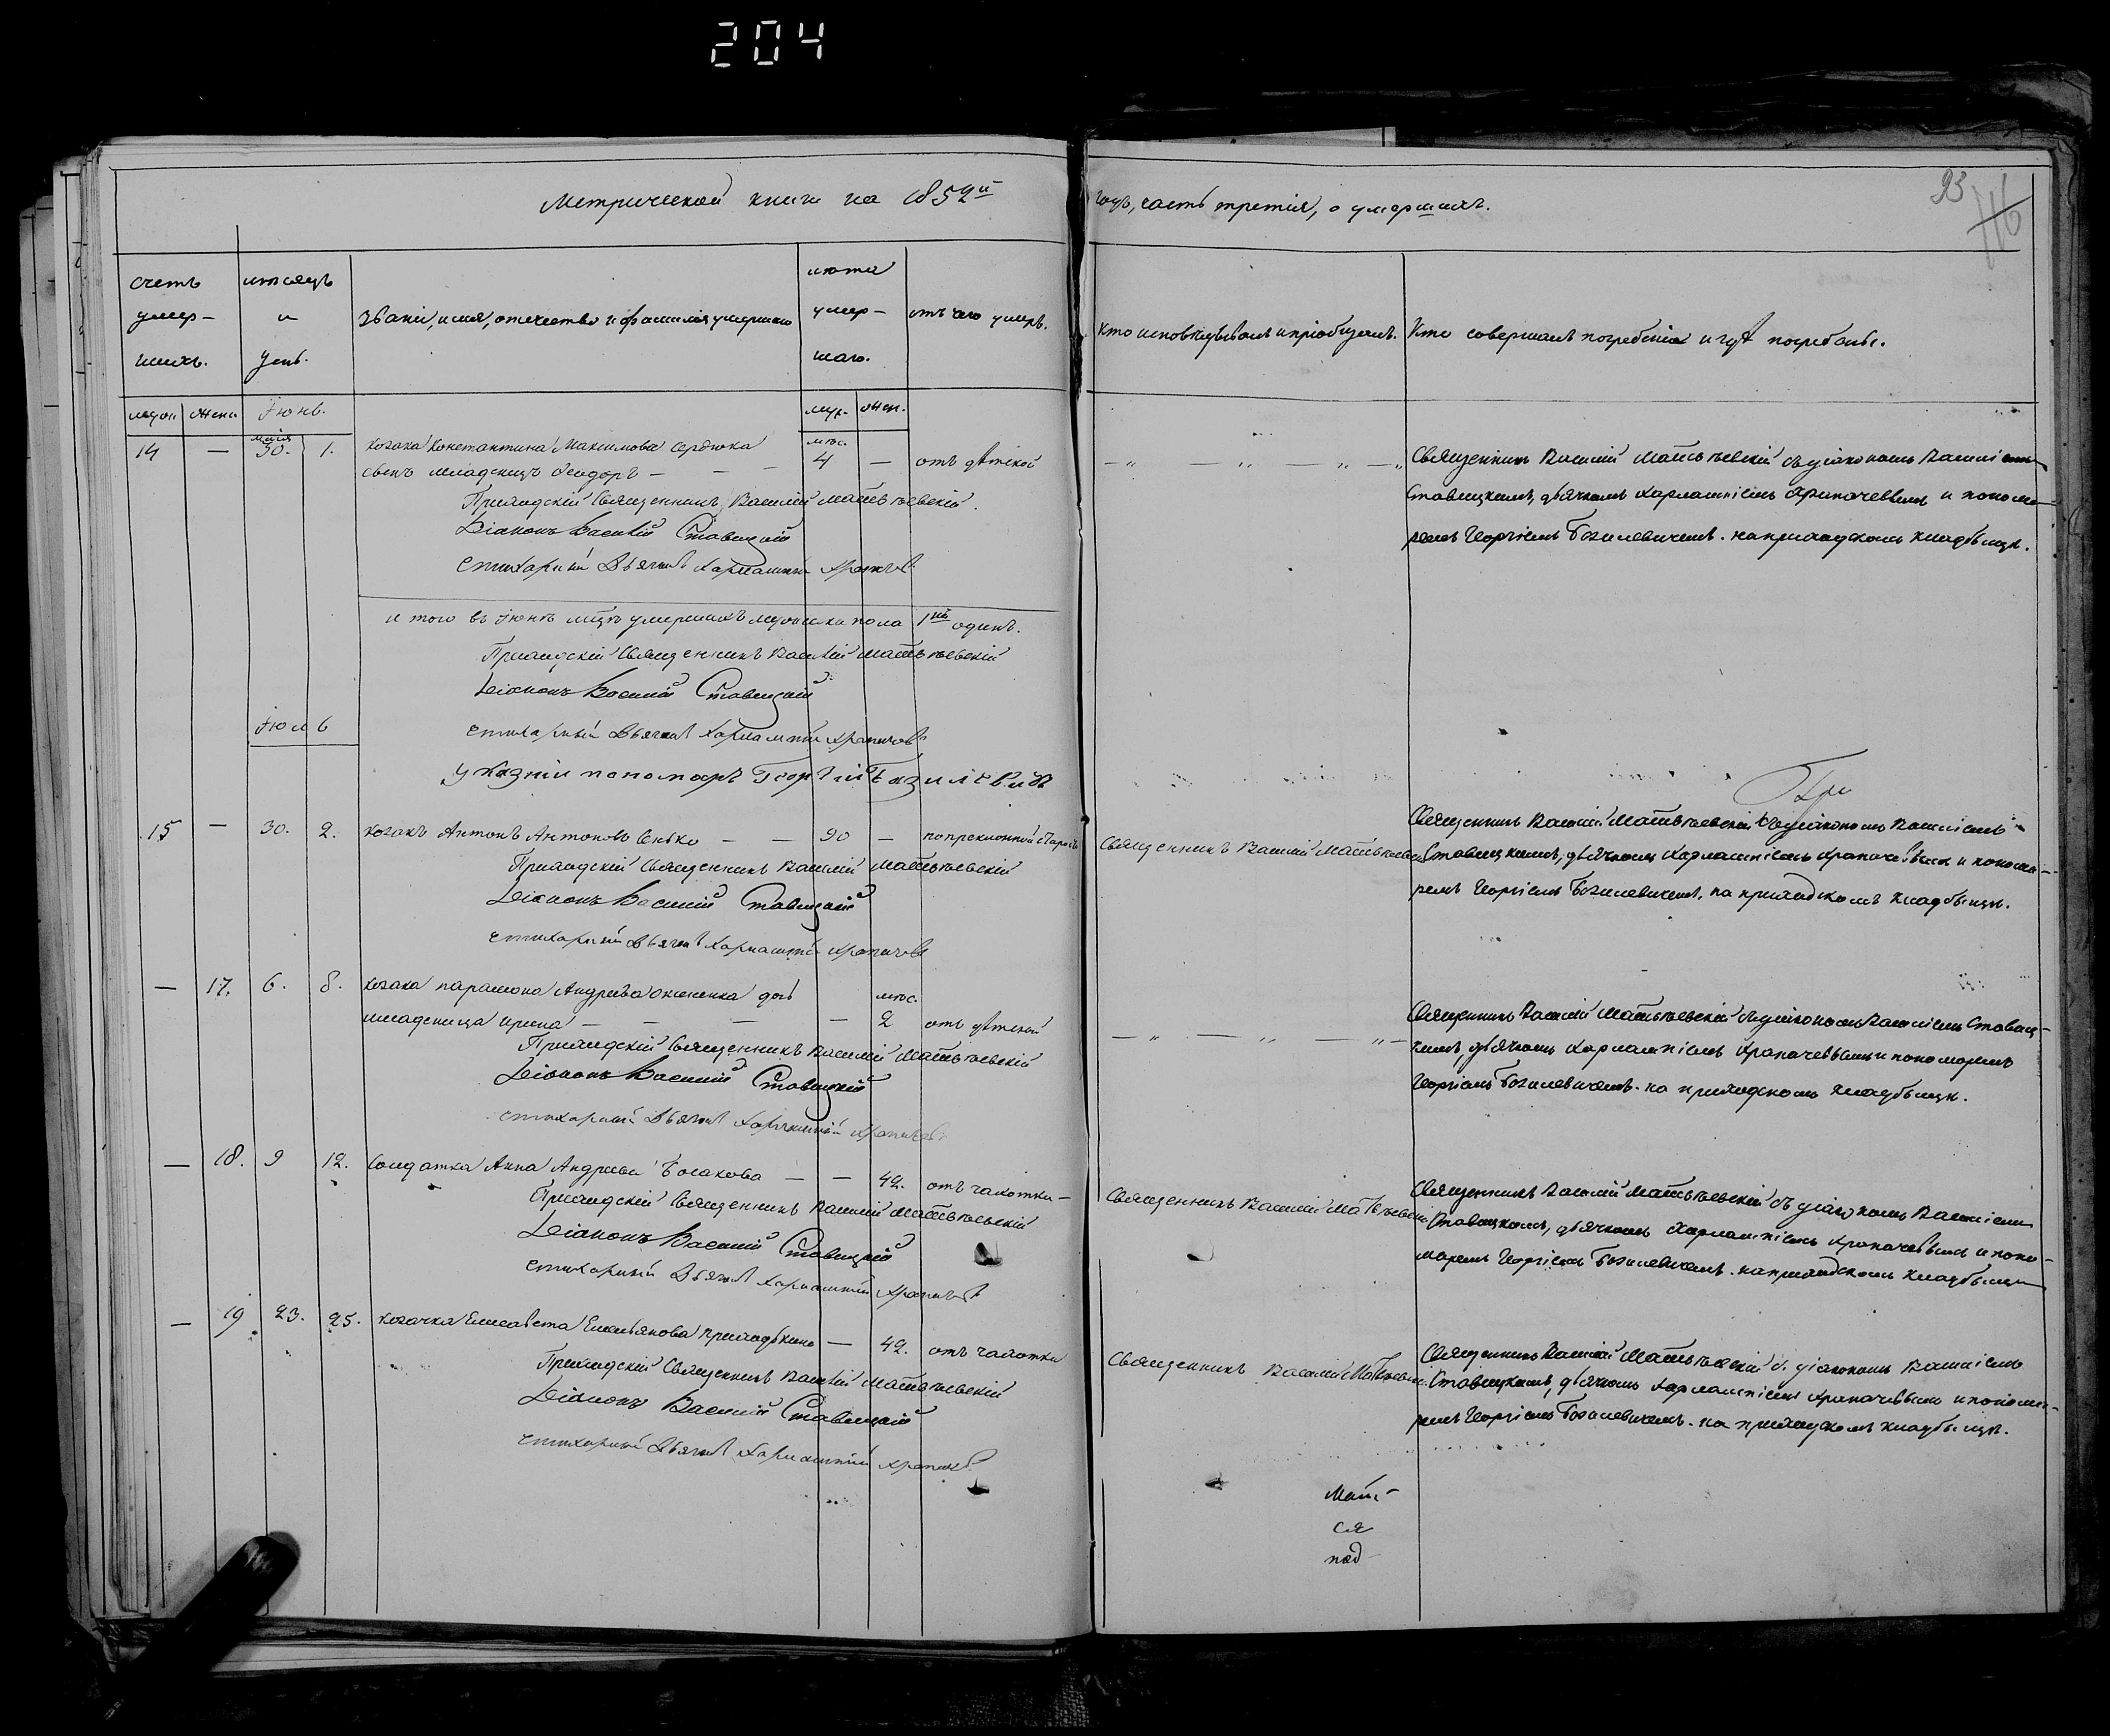 204
Метрической книги на 1852й
годъ, часть третія, о умершихъ.
93
116
счетъ
умер-
шихъ.
мѣсяцъ
и
день.
званіе, имя, отечество и фамилія умершаго
лѣта
умер-
шаго.
отъ чего умеръ.
Кто исповѣдывалъ и пріобщалъ.
Кто совершалъ погребеніе и гдѣ погребены.
муж женс Іюнь.
муж. жен.
14 — маія 30. 1. козака Константина Максимова Сердюка мѣс. 4 — отъ дѣтской
сынъ младенецъ Феодоръ — — —
Священникъ Василій Матвѣевскій съ діакономъ Василіемъ
Ставицкимъ, дьячкомъ Харлампіемъ Храпачевымъ и понома-
ремъ Георгіемъ Базилевичемъ. на приходскомъ кладбищѣ.
Приходскій Священникъ Василій Матвѣевскій.
Діаконъ Василій Ставицкій
стихарный Дьячокъ Харлампій
и того въ Іюнѣ мцѣ умершихъ мужеска пола 1нъ одинъ.
Приходскій Священникъ Василій Матвѣевскій
Діаконъ Василій Ставицкій
стихарный Дьячокъ Харлампій
Указній пономарь Георгій Базилевичъ
Іюль
15 — 30. 2. козакъ Антонъ Антоновъ Сенько — — 90 — по преклонной старости
Священникъ Василій Матвѣевскій
Священникъ Василій Матвѣевскій съ діакономъ Василіемъ
Ставицкимъ, дьячкомъ Харлампіемъ Храпачевымъ и понома-
ремъ Георгіемъ Базилевичемъ. на приходскомъ кладбищѣ.
Приходскій Священникъ Василій Матвѣевскій
Діаконъ Василій Ставицкій
стихарный Дьячокъ Харлампій
— 17. 6. 8. козака Парамона Андреева дочь мѣс.
младеница Ирина — — — — 2 отъ дѣтской
Священникъ Василій Матвѣевскій съ діакономъ Василіемъ Ставиц-
кимъ, дьячкомъ Харлампіемъ Храпачевымъ и пономаремъ
Георгіемъ Базилевичемъ. на приходскомъ кладбищѣ.
Приходскій Священникъ Василій Матвѣевскій
Діаконъ Василій Ставицкій
стихарный Дьячокъ Харлампій
— 18. 9 12. Солдатка Анна Андреева — — 42. отъ чахотки —
Священникъ Василій Матвѣевскій
Священникъ Василій Матвѣевскій съ діакономъ Василіемъ
Ставицкимъ, дьячкомъ Харлампіемъ Храпачевымъ и поно-
маремъ Георгіемъ Базилевичемъ. на приходскомъ кладбищѣ
Приходскій Священникъ Василій Матвѣевскій
Діаконъ Василій Ставицкій
стихарный Дьячокъ Харлампій
— 19 23. 25. козачка Елисавета Емельянова Приходькина — 42. отъ чахотки
Священникъ Василій Матвѣевскій
Священникъ Василій Матвѣевскій съ діакономъ Василіемъ
Ставицкимъ, дьячкомъ Харлампіемъ Храпачевымъ и понома-
ремъ Георгіемъ Базилевичемъ. на приходскомъ кладбищѣ.
Приходскій Священникъ Василій Матвѣевскій
Діаконъ Василій Ставицкій
стихарный Дьячокъ Харлампій
ся
под